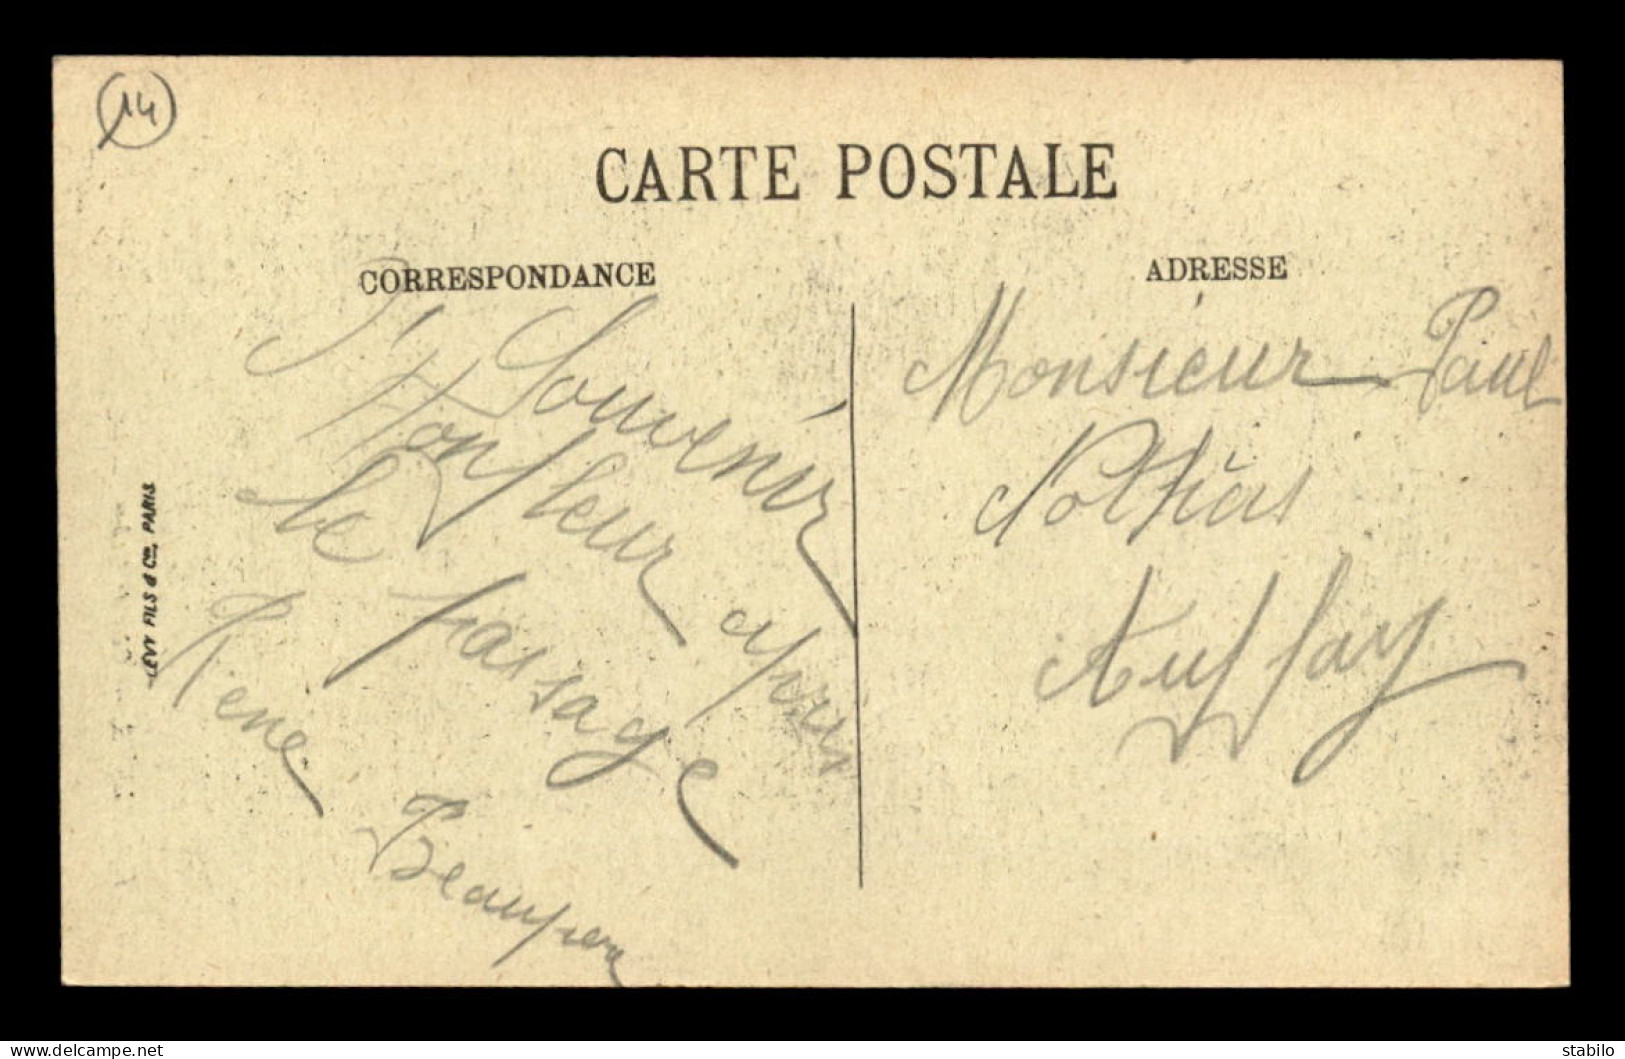 14
CARTE POSTALE
CORRESPONDANCE
Souvenir
d'Honfleur après
le passage
René Beaupère
LEVY FILS & Cie, PARIS
ADRESSE
Monsieur Paul
Nothias
Auffay
www.delcampe.net
stabilo